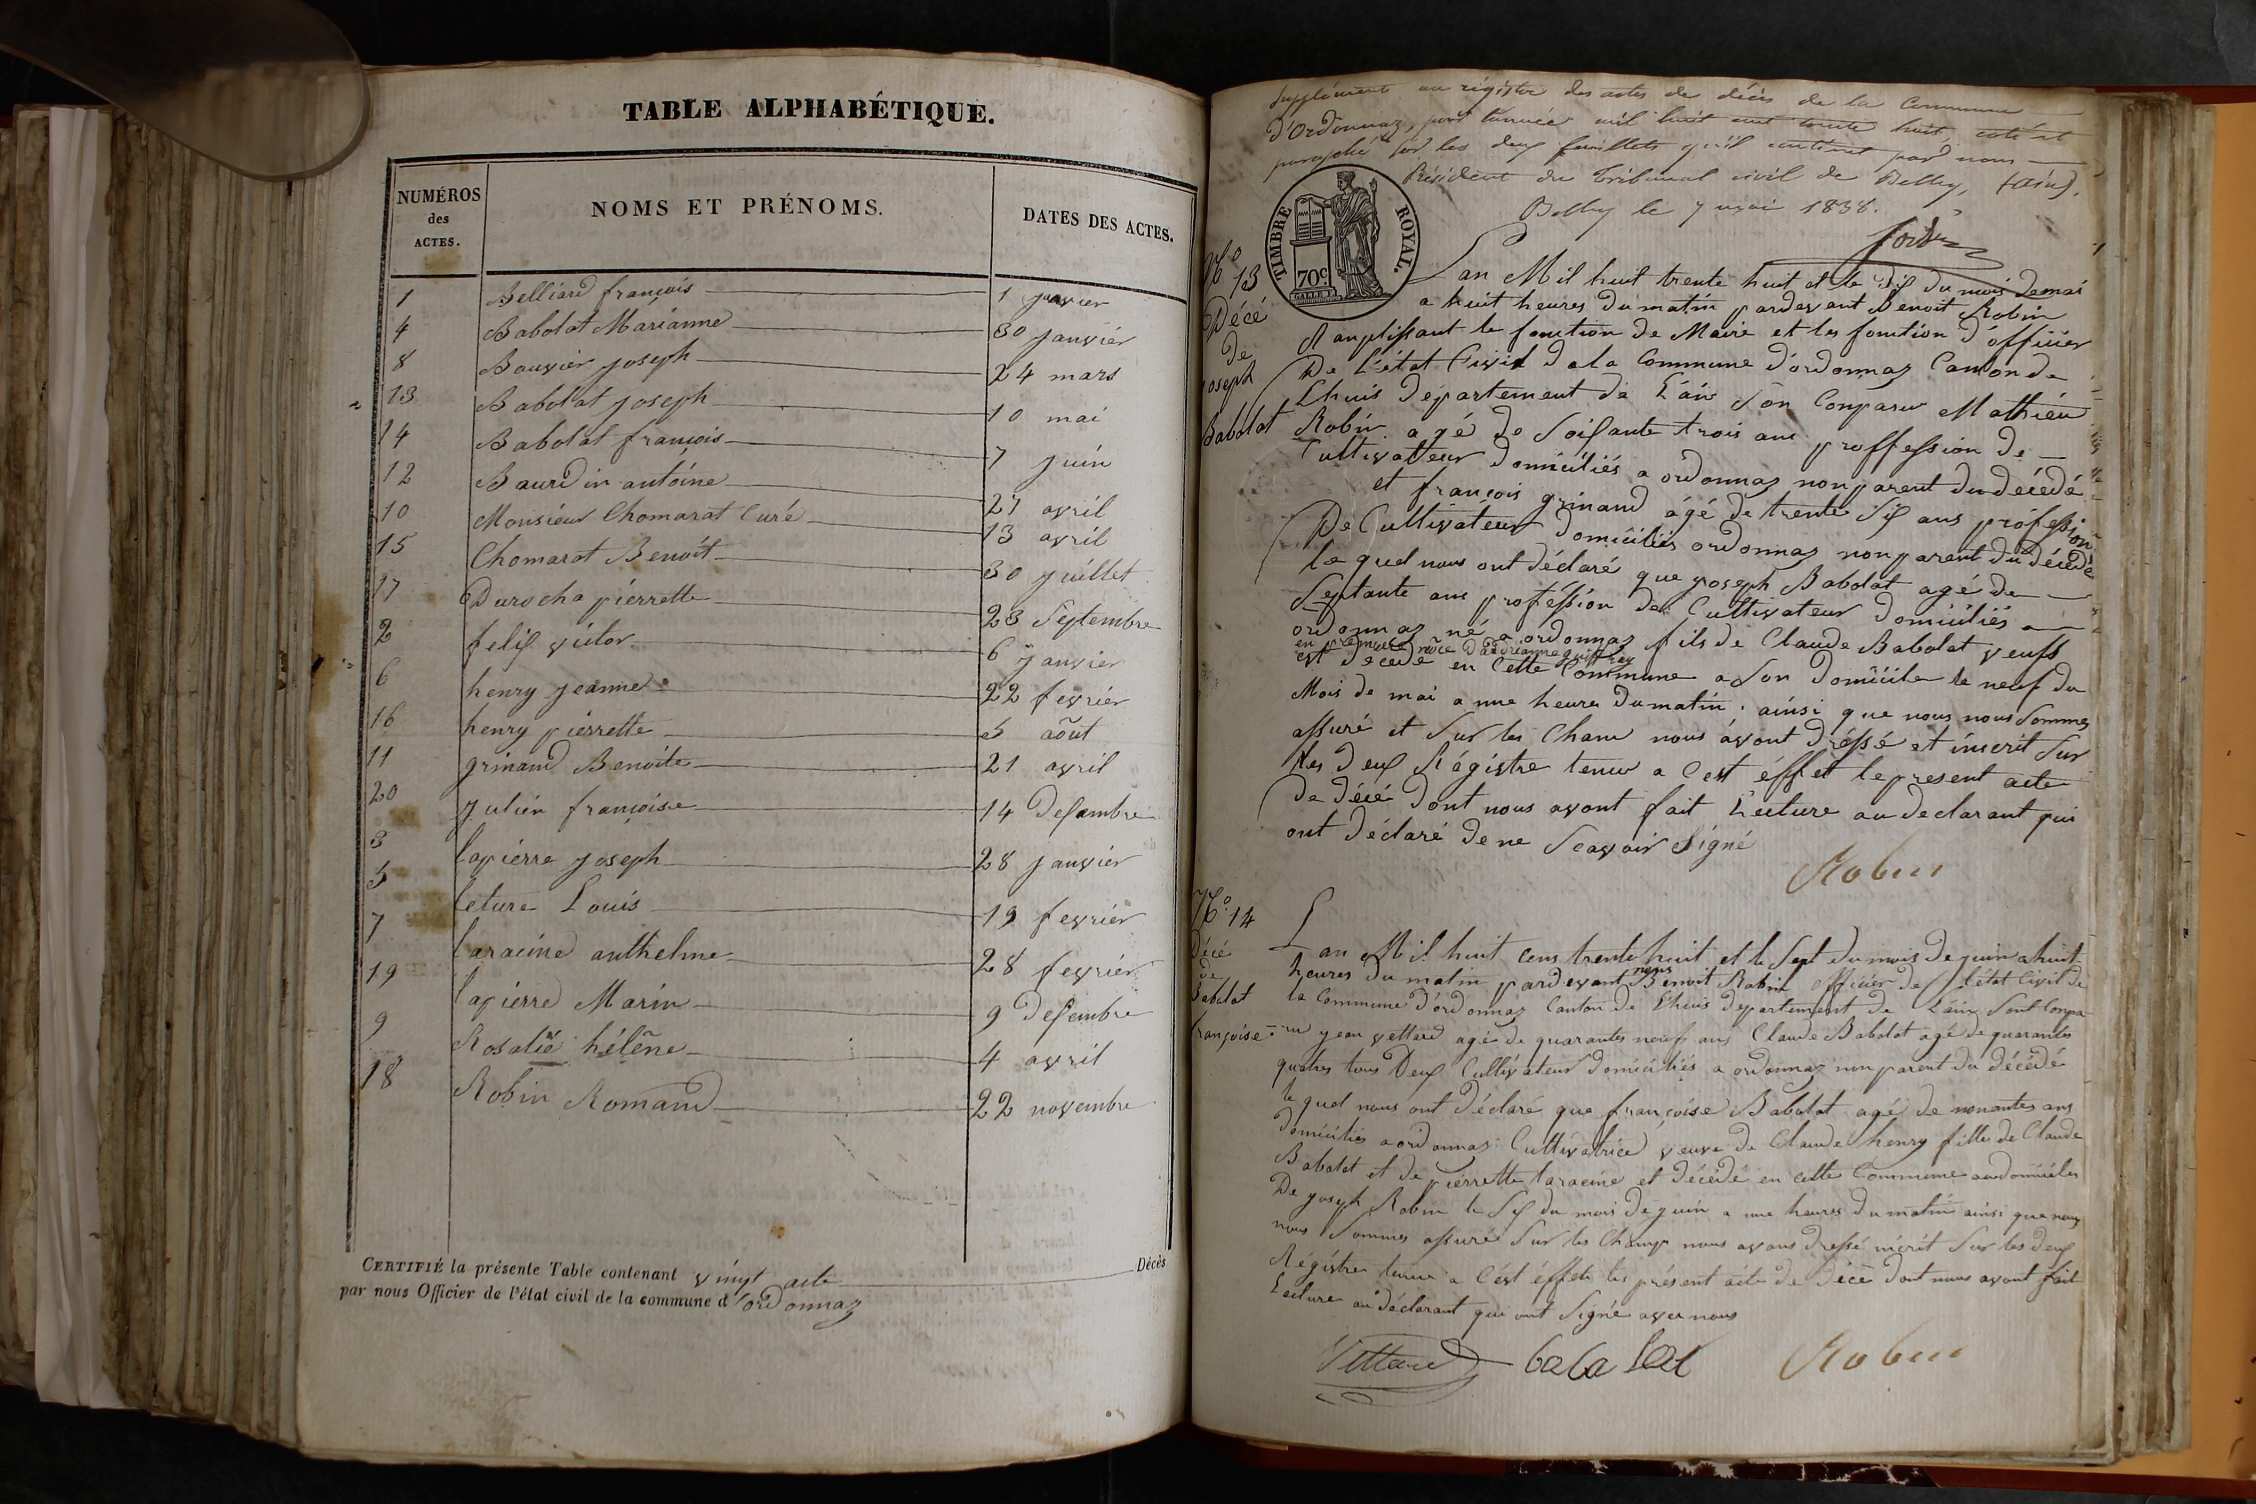 TABLE ALPHABÉTIQUE.
NUMÉROS des ACTES. NOMS ET PRÉNOMS. DATES DES ACTES.
1 Belliard françois 1 janvier
4 Babolat Marianne 30 janvier
8 Bouvier joseph 24 mars
13 Babolat joseph 10 mai
14 Babolat françois 7 juin
12 Baurdin antoine 27 avril
10 Monsieur Chomarat Curé 13 avril
15 Chomarat Benoit 30 juillet
17 Durocha pierrette 23 Septembre
2 felix victor 6 janvier
6 henry jeanne 22 fevrier
16 henry pierrette 5 août
11 grinand Benoite 21 avril
20 julien françoise 14 Desambre
3 lapierre joseph 28 janvier
5 leture Louis 19 fevrier
7 laracine anthelme 28 fevrier
19 lapierre Marin 9 Desembre
9 Rosalie hélène 4 avril
18 Robin Romand 22 novembre
CERTIFIÉ la présente Table contenant vingt acte Décès
par nous Officier de l'état civil de la commune d'ordonnaz
Supplément au régistre des actes de décès de la Commune
d'Ordonnaz, pour l'année mil huit cent trente huit, coté et
paraphé sur les deux feuillets qu'il contient par nous
Président du Tribunal civil de Belley, (Ain).
Belley le 7 mai 1838.
TIMBRE ROYAL.
70c
N.o 13
Décé
de
joseph
Babolat
Lan Mil huit trente huit et le dix du mois demai
a huit heures du matin pardevant Benoit Robin
Ramplissant le fonction de Maire et les fonction d'officier
De L'état Civil dela Commune d'ordonnaz Canton de
Lhuis Département de L'ain Son Comparu Mathieu
Robin agé de Soisante trois ans proffession de
Cultivateur domiciliés a ordonnaz non parent du décédé
et françois grinand âgé de trente Six ans profession
De Cultivateur domiciliés ordonnaz non parent du décédé
le quel nous ont déclaré que joseph Babolat agé de
Septante ans proféssion de Cultivateur domiciliés a
ordonnaz né a ordonnaz fils de Claude Babolat veufs
en premiere noce
est décédé en Cette Commune a Son domicile le neuf du
Mois de mai a une heure du matin. ainsi que nous nous Sommes
assuré et Sur les Cham nous avont dréssé et inscrit Sur
les deux Régistre tenu a Cest éffet le present acte
de décé dont nous avont fait Lecture au declarant qui
ont déclaré de ne Scavoir Signé
Robin
N.o 14
Décé
de
Babolat
françoise
Lan Mil huit Cens trente huit et le Sept du mois de juin a huit
heures du matin pardevant nous Benoit Robin officier de l'état Civil de
la Commune d'ordonnaz Canton de Lhuis departement de L'ain Sont Compa
ru jean vettard agé de quarantes neufs ans Claude Babolat agé de quarantes
quatres tous Deux Cultivateur domiciliés a ordonnaz non parent du décédé
le quel nous ont déclaré que françoise Babolat agé de nonantes ans
domiciliés a ordonnaz Cultivatrice veuve de Claude henry fille de Claude
Babolat et de pierrette laracine et décédé en cette Commune audomiciles
De joseph Robin le Six du mois de juin a une heures du matin ainsi que nous
nous Sommes assuré Sur les Champ nous avons dressé inscrit Sur les deux
Régistre tenu a Cést éffets les présent acte de Décé dont nous avont fait
Lecture au déclarant qui ont Signé avec nous
Vettard babolat Robin